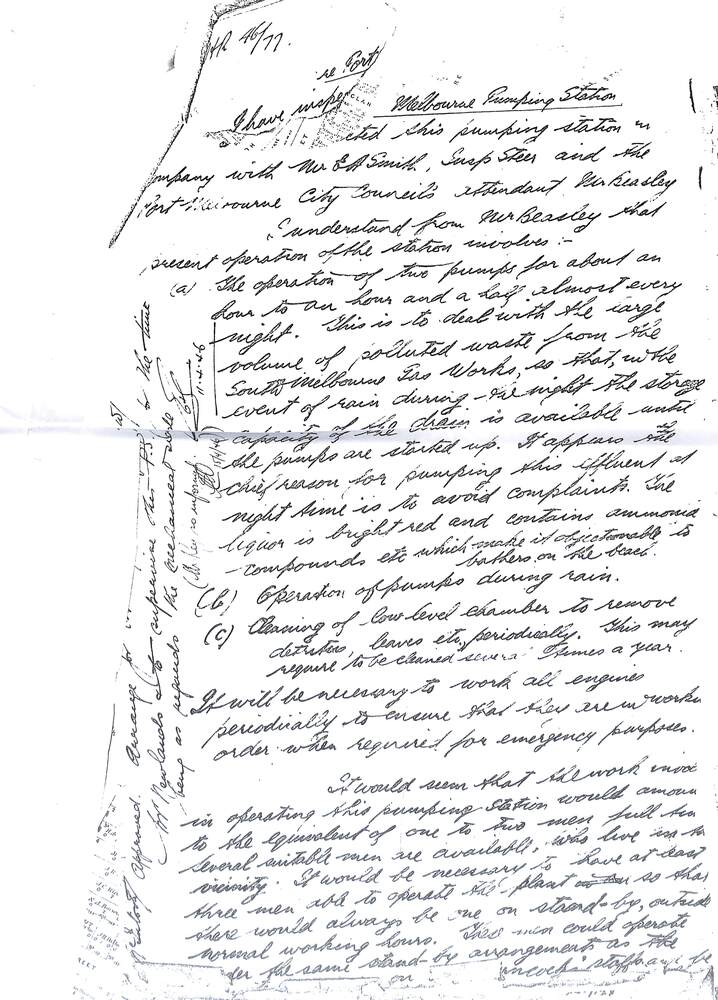 HR 46/77.
re Port
Melbourne Pumping Station
I have inspe
cted this pumping station in
company with Mr E A Smith, Insp Steer and the
Port Melbourne City Council's attendant Mr Beasley
I understand from Mr Beasley that
present operation of the station involves:-
(a) The operation of two pumps for about an
hour to an hour and a half almost every
night. This is to deal with the large
volume of polluted waste from the
South Melbourne Gas Works, so that, in the
event of rain during the night the storage
capacity of the drain is available until
the pumps are started up. It appears the
chief reason for pumping this effluent at
night time is to avoid complaints. The
liquor is bright red and contains ammonia
compounds etc which make it objectionable to
bathers on the beach.
(b) Operation of pumps during rain.
(c) Cleaning of low-level chamber to remove
detritus, leaves etc, periodically. This may
require to be cleaned several times a year.
It will be necessary to work all engines
periodically to ensure that they are in workin
order when required for emergency purposes.
It would seem that the work invol
in operating this pumping station would amoun
to the equivalent of one to two men full tim
several suitable men are available, who live in th
vicinity. It would be necessary to have at least
three men able to operate the plant so that
there would always be one on stand-by, outside
normal working hours. These men could operate
der the same stand-by arrangements as the
on staff and be
approved. Arrange for
Mr Newlands to supervise this P.S. for the time
being as regards the mechanical side
11-4-46